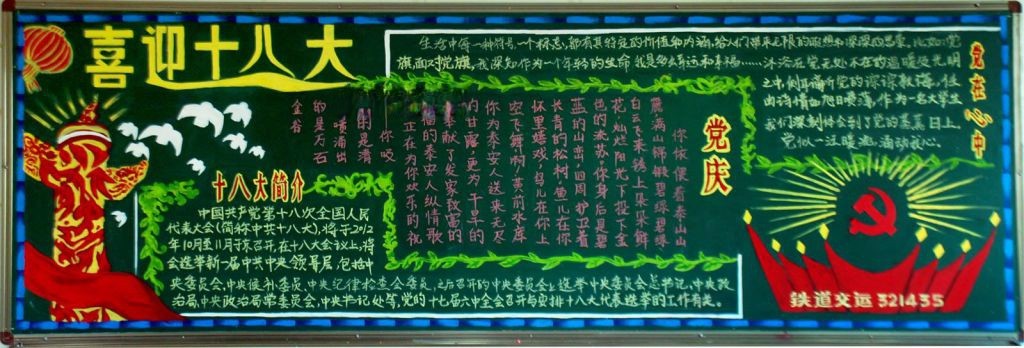 喜迎十八大
生活中每一种符号,一个标志,都有其特定的价值和内涵,给人们带来无限的联想和深深的思索。比如:党
旗面对党旗,我深知作为一个年轻的生命我是多么幸运和幸福……
沐浴在党无处不在的温暖及光明
之中,侧耳聆听党的谆谆教诲,任
由诗情如旭日喷薄。作为一名大学生
我们深刻体会到了党的蒸蒸日上。
党似一泓暖流,涌动我心。
党在心中
党庆
你依偎着泰山山
麓满山 缎碧绿碧绿
白云飞来 上朵朵鲜
花灿烂阳光下投下金
色的流苏你身后是碧
蓝的山峦四周护立着
长青的松树鱼儿在你
怀里嬉戏鸟儿在你上
空飞舞啊黄前水库
你为泰安人送来无尽
内甘露更为千里的
奉献了发家致富的
的泰安人纵情歌
正在为你欢乐的祝
你咬
的是清
喷涌出
的是为石
金谷
十八大简介
中国共产党第十八次全国人民
代表大会(简称中共十八大),将于2012
年10月至11月于京召开,在十八大会议上,将
会选举新一届中共中央领导层,包括中
央委员会,中央候补委员,中央纪律检查会委员,之后召开的中央委员会上选举中央委员会总书记,中央政
治局,中央政治局常委员会,中央书记处等,党的十七届六中全会召开与安排十八大代表选举的工作有关。
鉄道交运321435